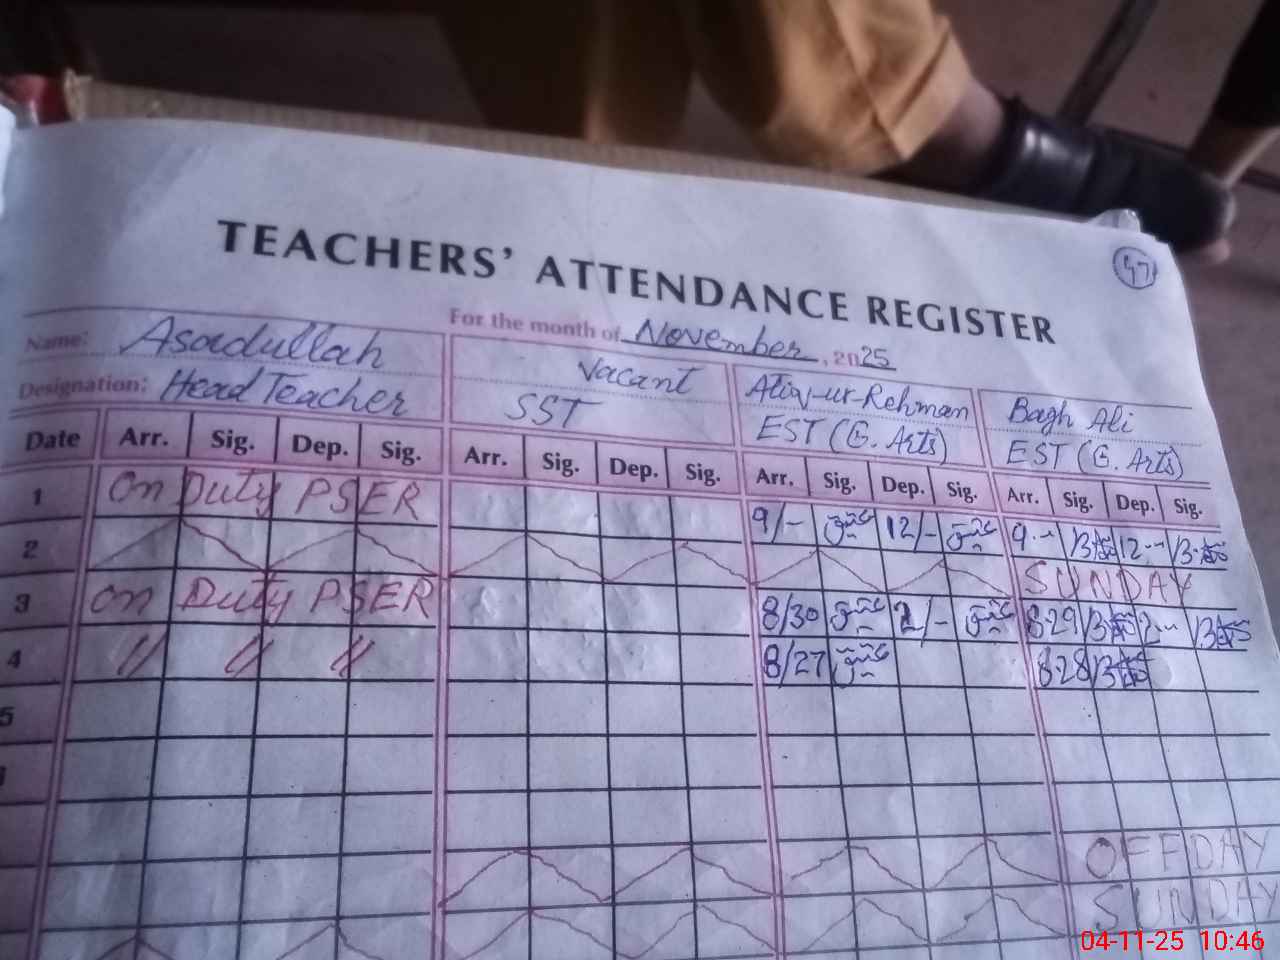 47
TEACHERS' ATTENDANCE REGISTER
For the month of November, 2025
Name: Asadullah Vacant Atiq-ur-Rehman Bagh Ali
Designation: Head Teacher SST EST (G. Arts) EST (G. Arts)
Date Arr. Sig. Dep. Sig. Arr. Sig. Dep. Sig. Arr. Sig. Dep. Sig. Arr. Sig. Dep. Sig.
1 On Duty PSER 9/- 12/- 9-- 12--
2 SUNDAY
3 On Duty PSER 8/30 2/- 829 2--
4 " " " 8/27 828
5
OFFDAY
SUNDAY
04-11-25 10:46